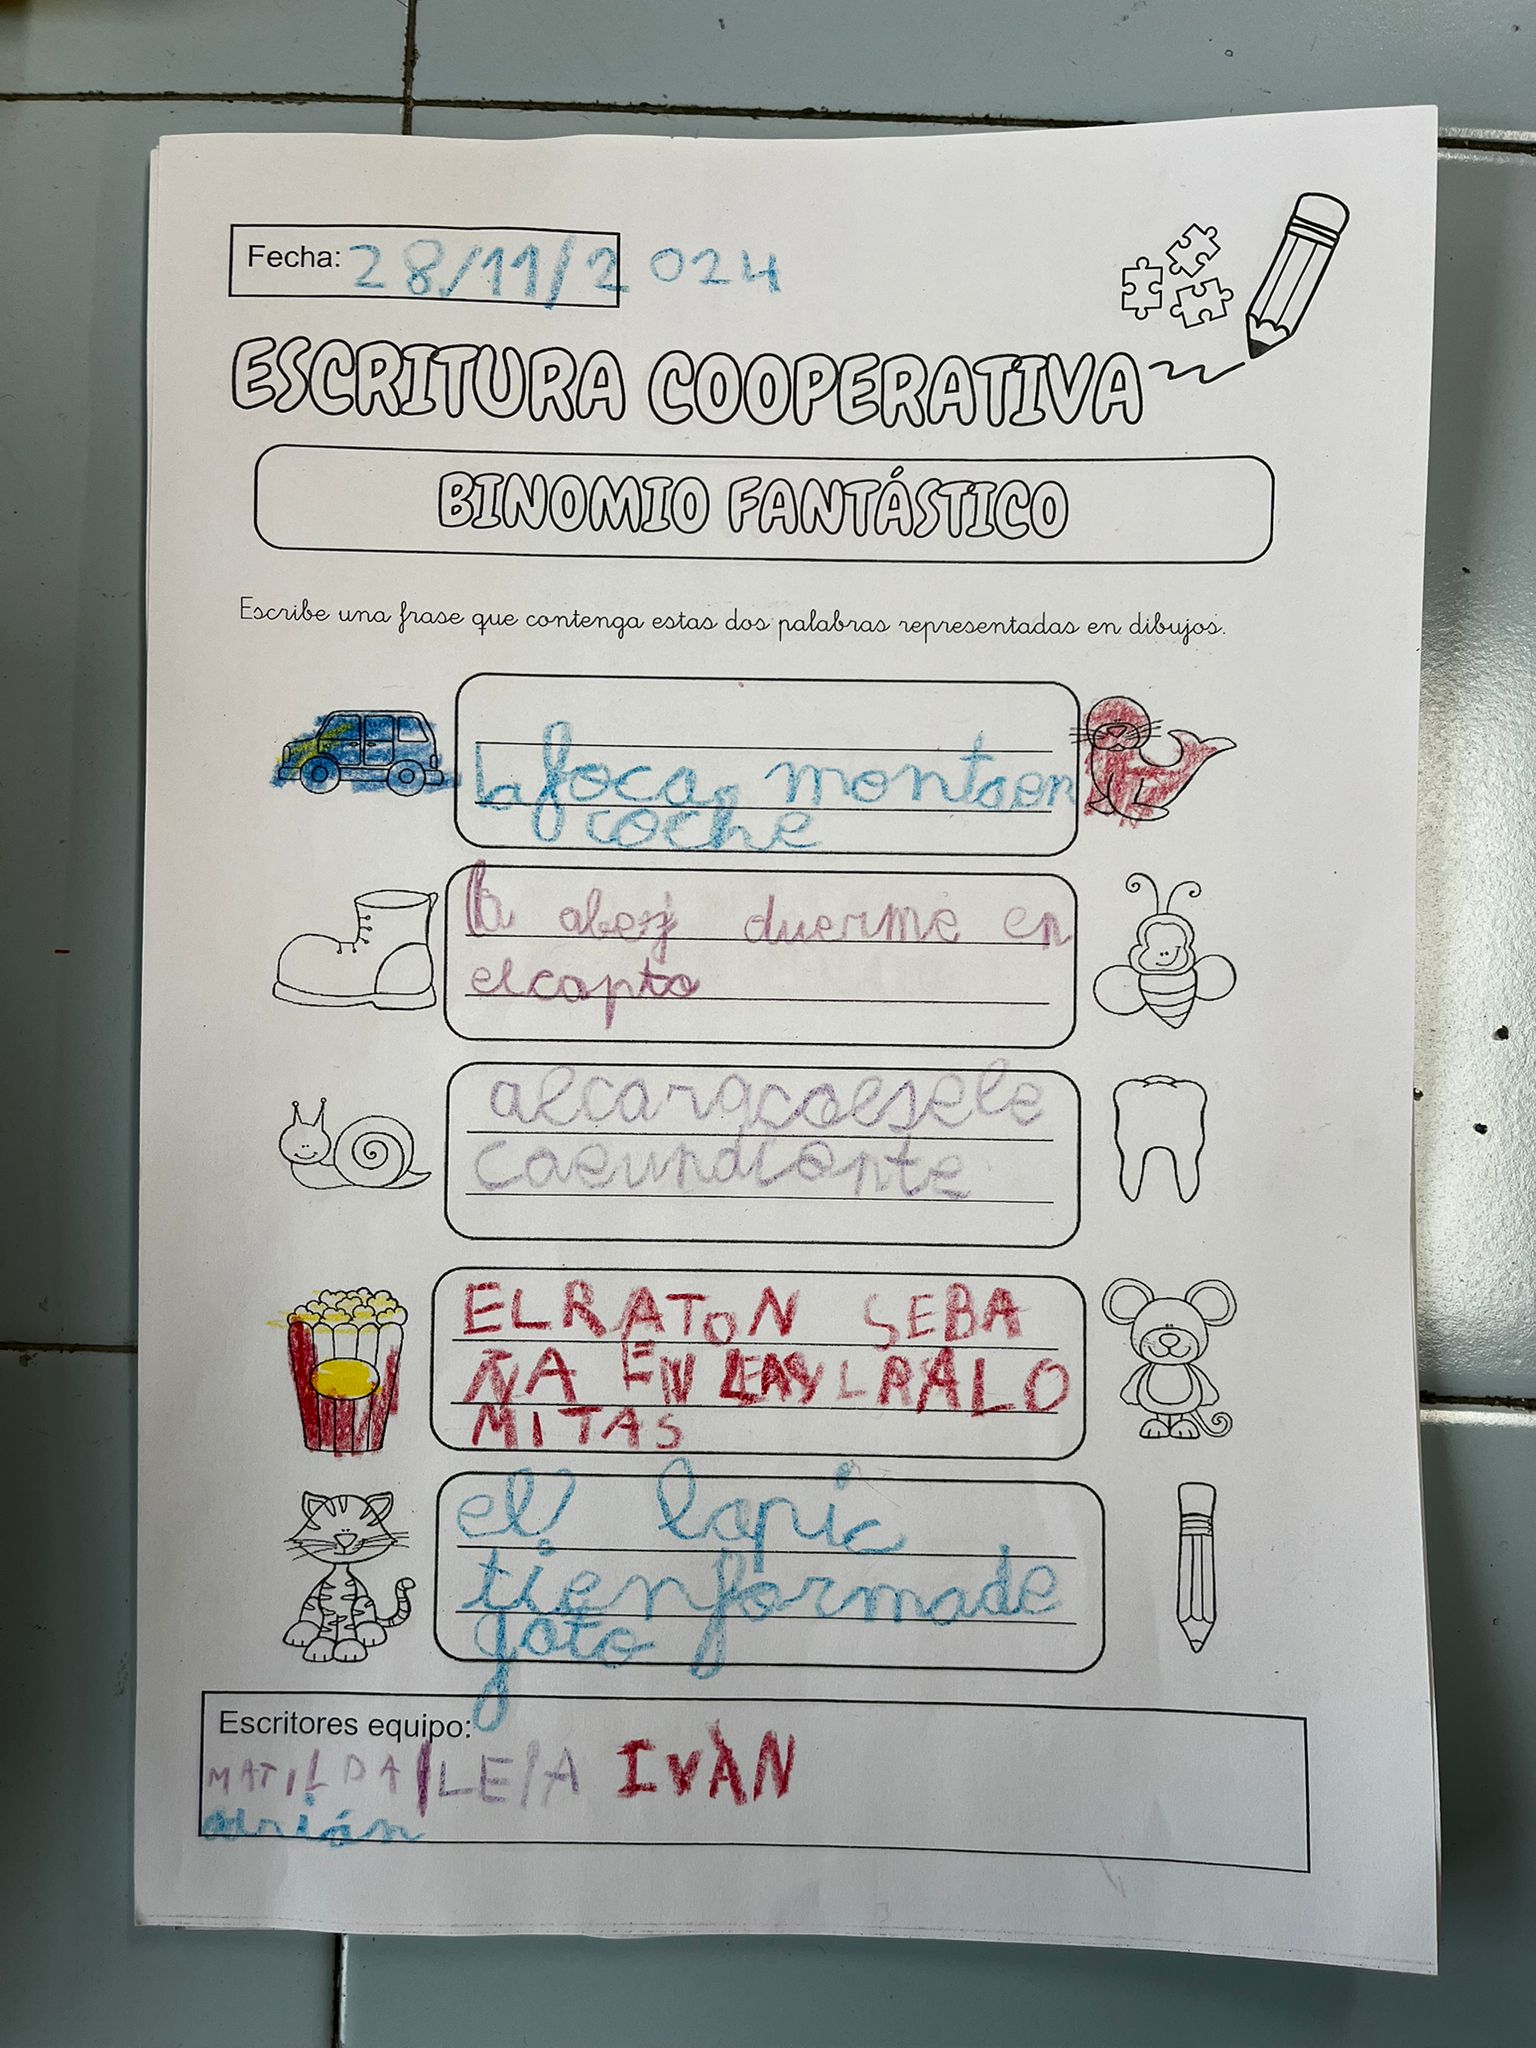 Fecha: 28/11/2024
ESCRITURA COOPERATIVA
BINOMIO FANTÁSTICO
Escribe una frase que contenga estas dos palabras representadas en dibujos.
La foca montaen
coche
la abej duerme en
elcapto
alcargcolesele
caeundiente
ELRATON SEBA
ÑA EN PALO
MITAS
el lapic
tienformade
gato
Escritores equipo:
MATILDA LEIA IVÀN
adrián